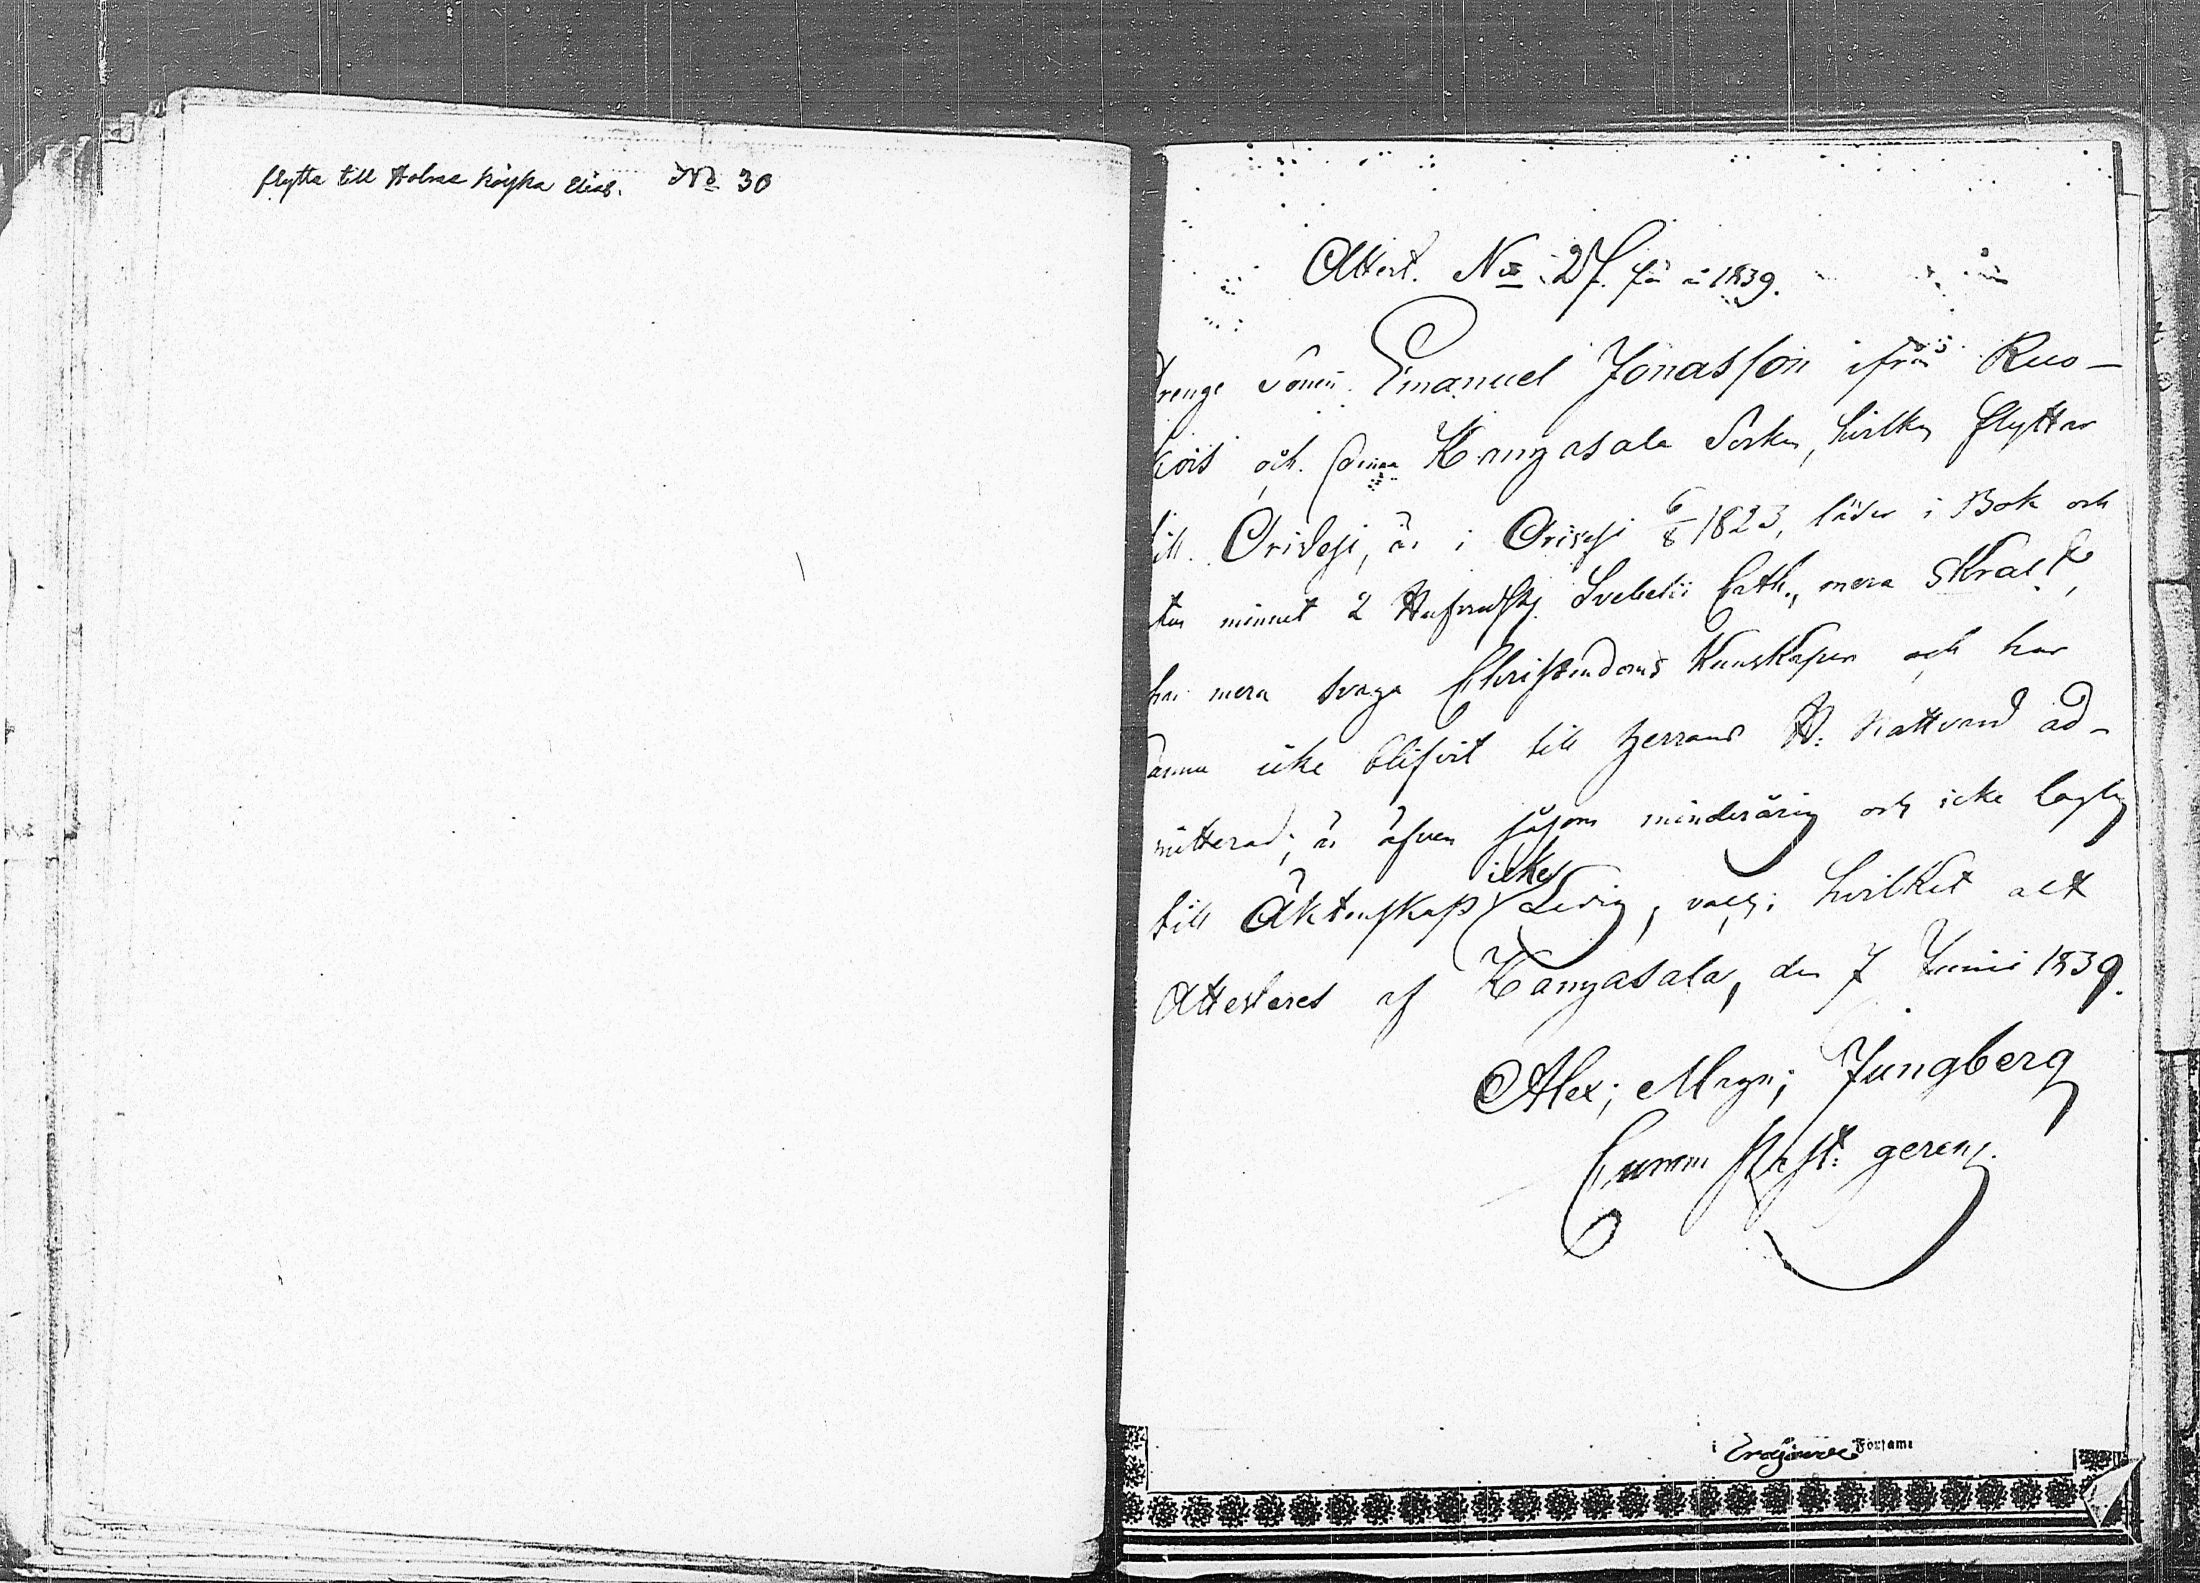 flytta till Holma Köykä Elias. No 30
Attest. No 27. för år 1839.
Drenge Sonen Emanuel Jonasson ifrån Ruo-
kois och Kangasala Sorken, hvilken flyttar
till Orivesi, är i Orivesi 6/8 1823, läser i Bok och
utur minnet 2 Hufvudstj. Svebelii Cath., mera skralt,
har mera svaga Christendoms Kunskaper och har
ännu icke blifvit till Herrans H. Nattvard ad-
mitterad; är äfven såsom minderårig och icke laglig
till Äktenskap icke Ledig, vacc; hvilket alt
Attesteras af Kangasala, den 7 Junii 1839.
Alex; Magn; Jungberg
Comm past: gereng.
i Församl